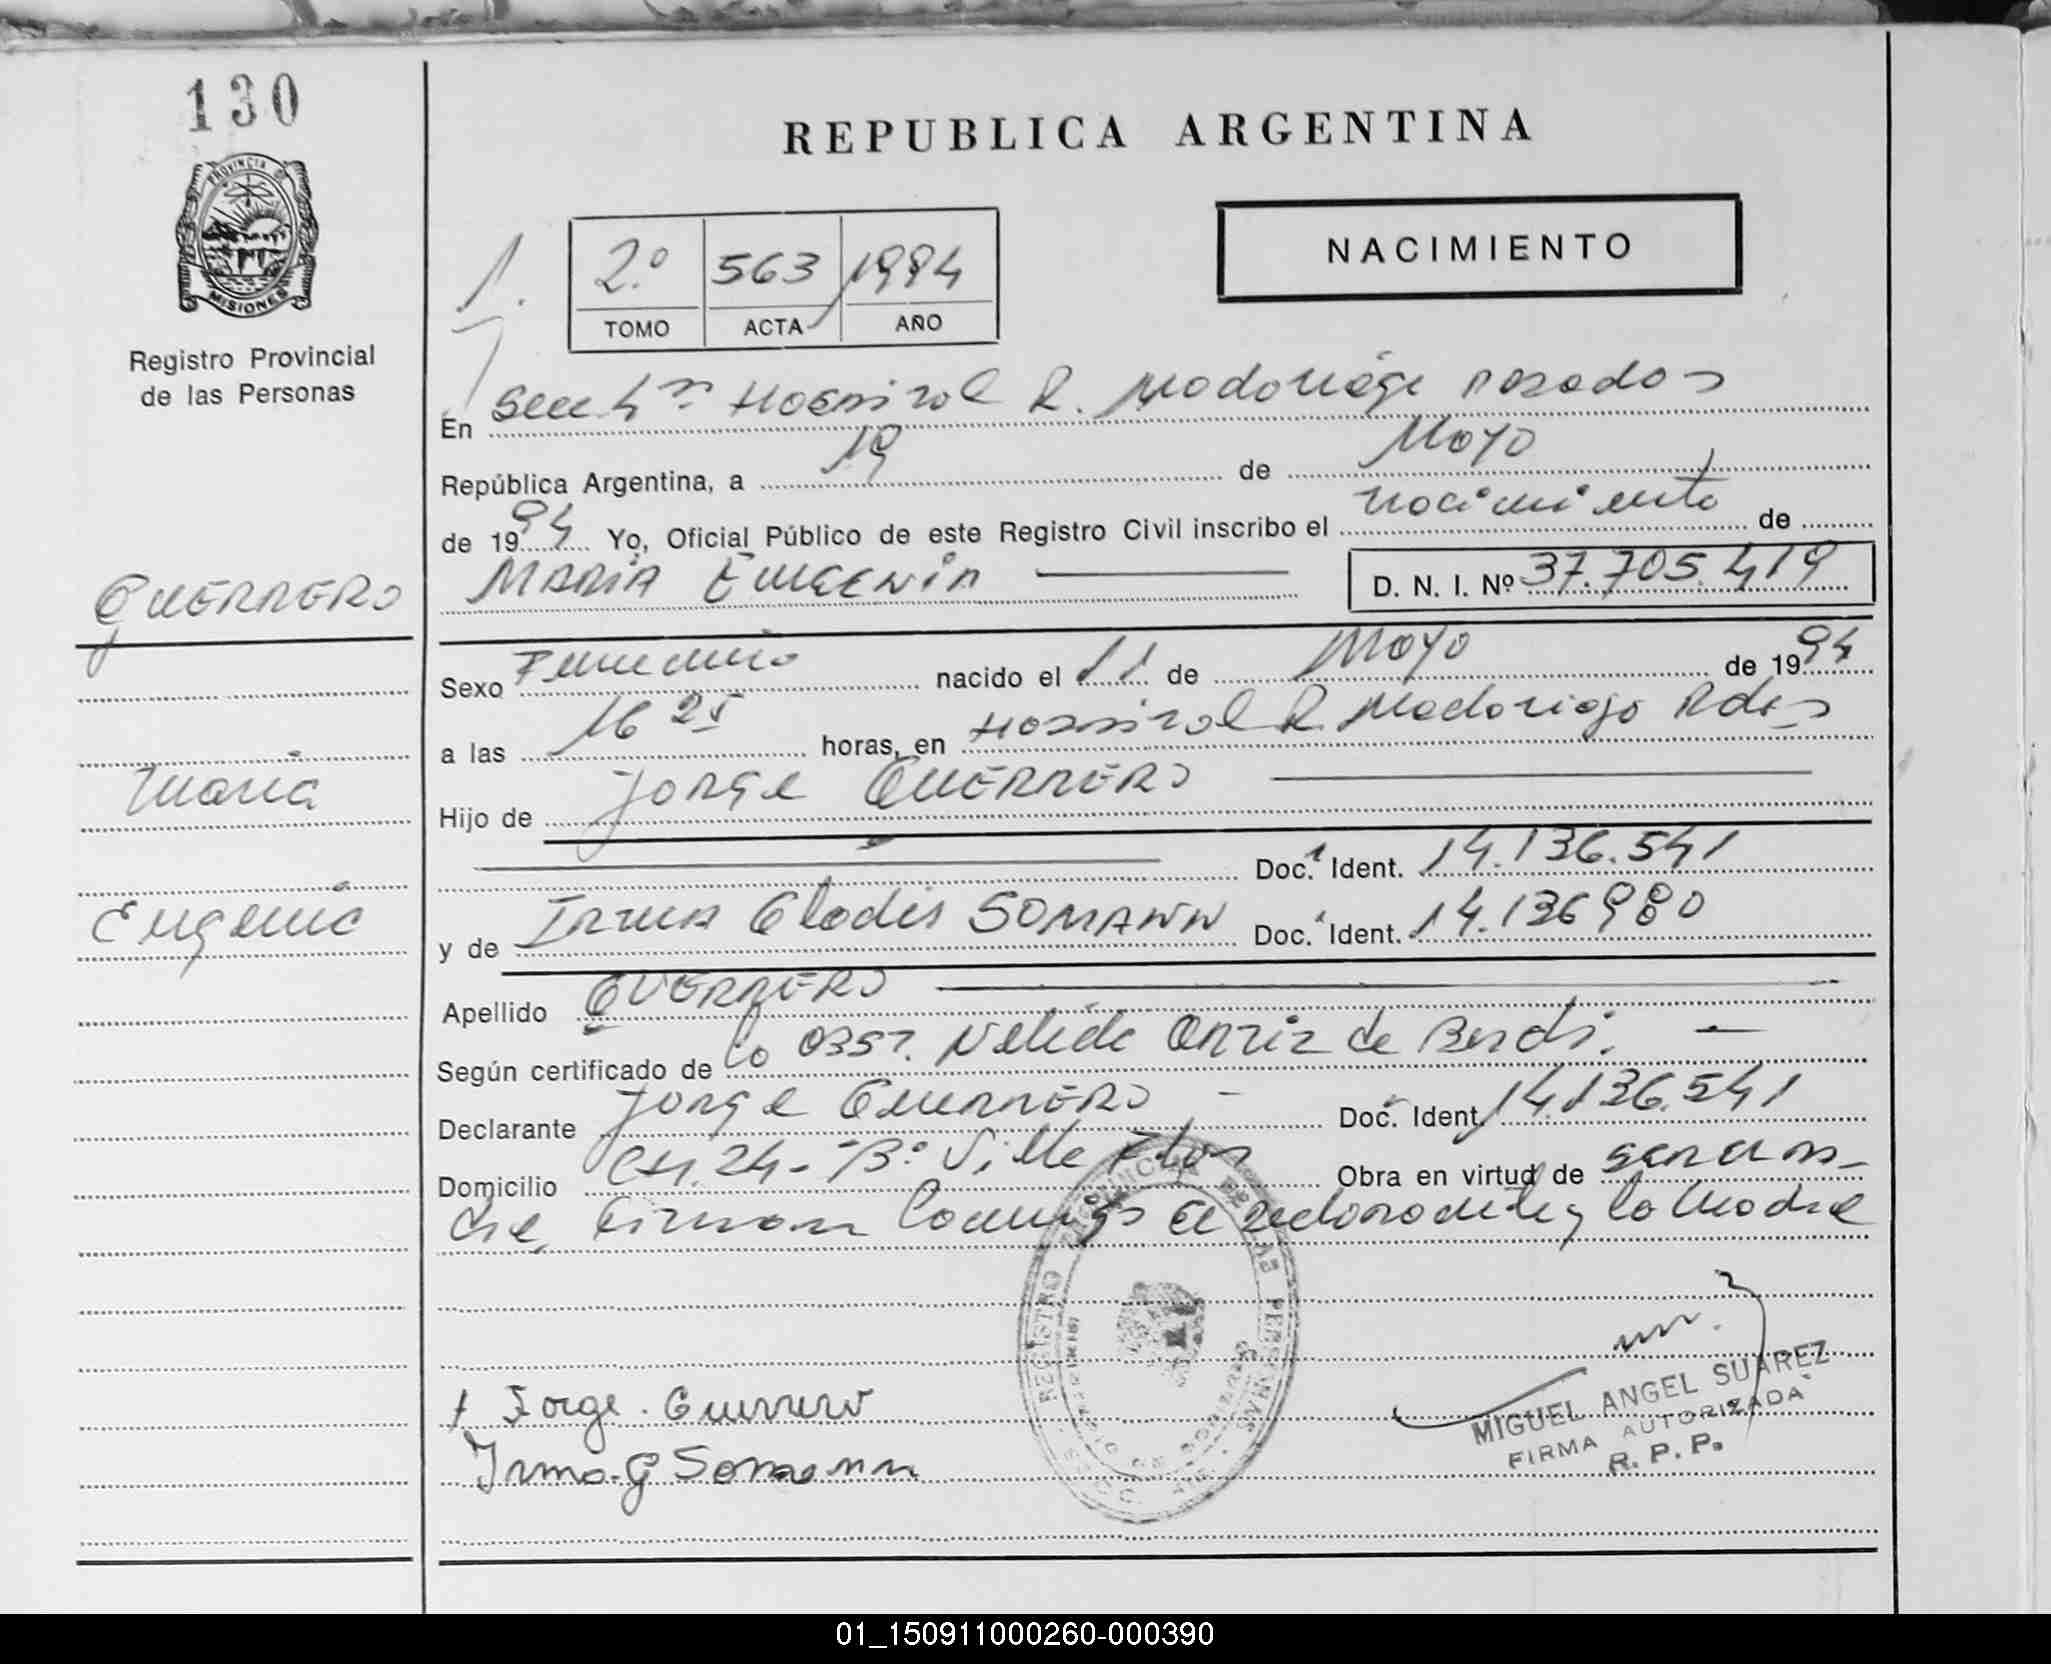 130
PROVINCIA DE
MISIONES
Registro Provincial
de las Personas
REPUBLICA ARGENTINA
NACIMIENTO
1.
2º 563 1994
TOMO ACTA AÑO
En Secc 4ª Hospital R. Madariaga Posadas
República Argentina, a 19 de Mayo
de 1994 Yo, Oficial Público de este Registro Civil inscribo el nacimiento de
MARÍA EUGENIA D. N. I. Nº 37.705.419
GUERRERO
María
Eugenia
Sexo Femenino nacido el 11 de Mayo de 1994
a las 16 25 horas, en Hospital R. Madariaga Pdas
Hijo de Jorge GUERRERO
Doc. Ident. 14.136.541
y de Irma Gladis SOMANN Doc. Ident. 14.136980
Apellido GUERRERO
Según certificado de la obst. Nélida Ortiz de
Declarante Jorge GUERRERO - Doc. Ident. 14.136.541
Domicilio CH. 24 - Bº Villa Flor Obra en virtud de
Firman Conmigo el declarante y la Madre
REGISTRO PROVINCIAL DE LAS PERSONAS
Jorge. Guerrero
Irma. G Somann
MIGUEL ANGEL SUAREZ
FIRMA AUTORIZADA
R. P. P.
01_150911000260-000390